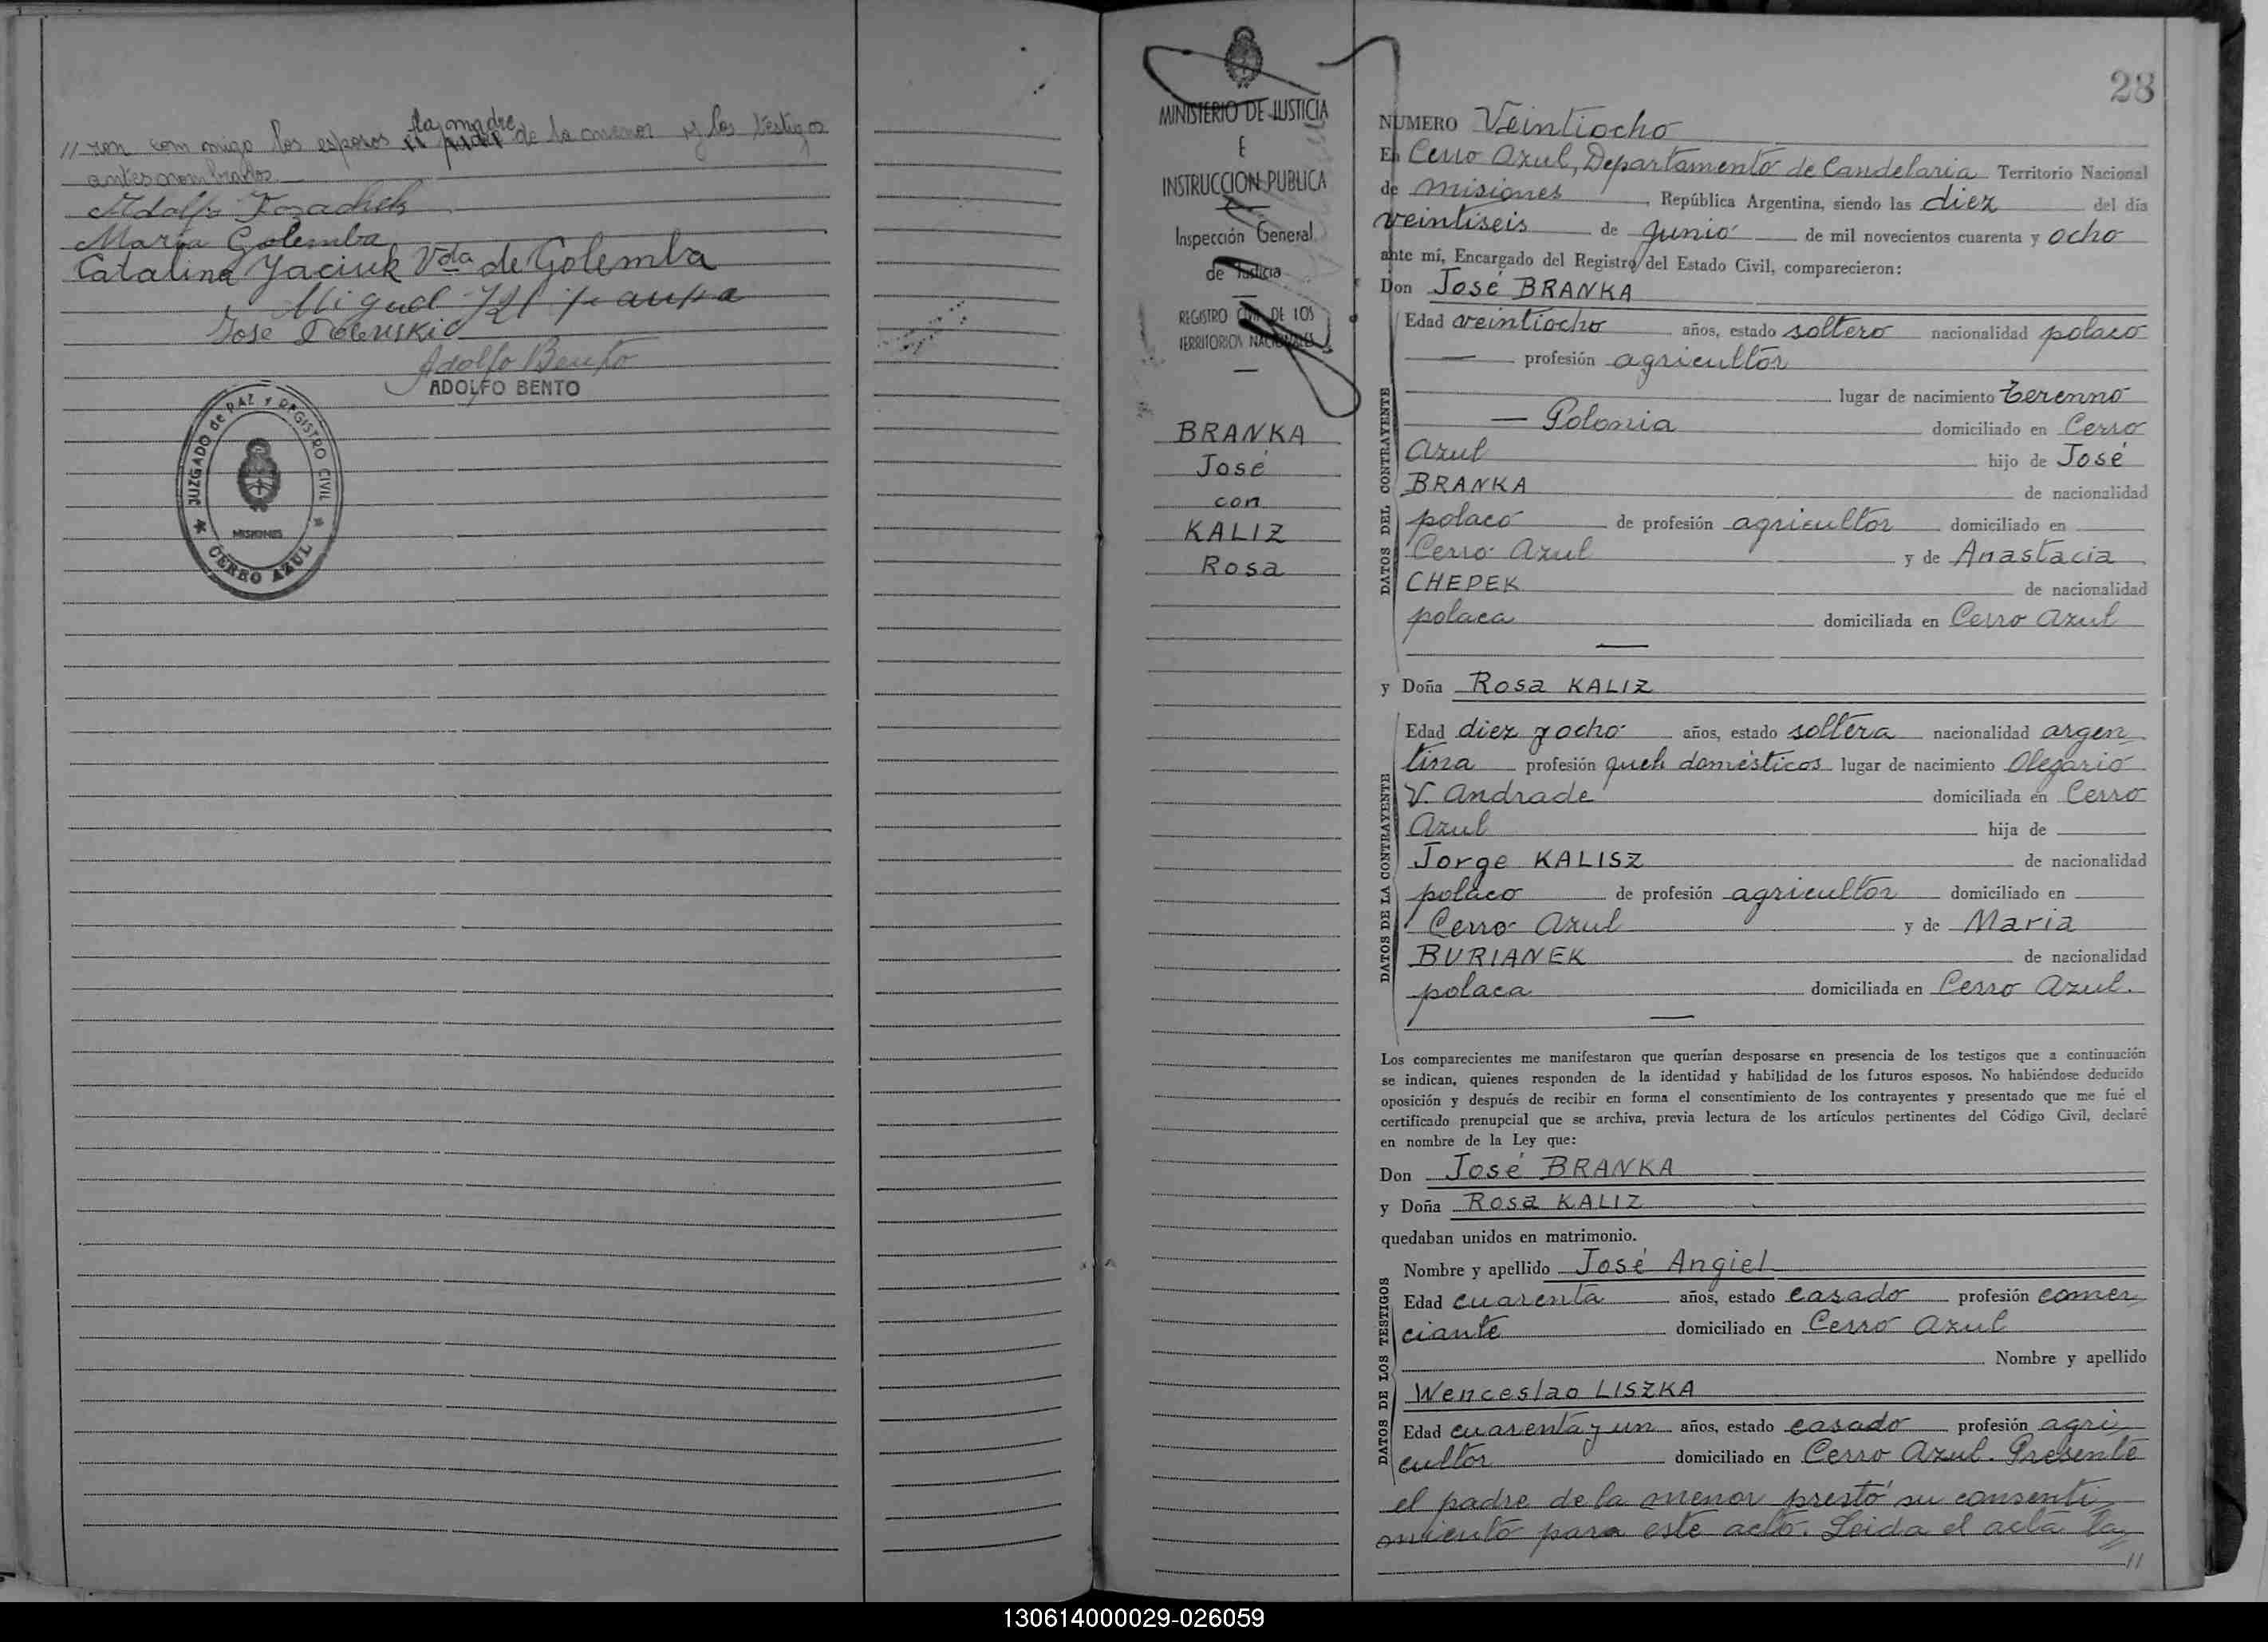 // ron conmigo los esposos la madre de la menor y los testigos
antes nombrados.
Adolfo
María Golemba
Catalina Jaciuk Vda de Golemba
Miguel
José
Adolfo Bento
ADOLFO BENTO
JUZGADO de PAZ y REGISTRO CIVIL
MISIONES
CERRO AZUL
MINISTERIO DE JUSTICIA
E
INSTRUCCION PUBLICA
Inspección General
de Justicia
REGISTRO CIVIL DE LOS
TERRITORIOS NACIONALES
BRANKA
José
con
KALIZ
Rosa
28
NUMERO Veintiocho
En Cerro Azul, Departamento de Candelaria Territorio Nacional
de Misiones, República Argentina, siendo las diez del día
veintiseis de Junio de mil novecientos cuarenta y ocho
ante mí, Encargado del Registro del Estado Civil, comparecieron:
Don José BRANKA
DATOS DEL CONTRAYENTE
Edad veintiocho años, estado soltero nacionalidad polaco
profesión agricultor
lugar de nacimiento Terenno
Polonia domiciliado en Cerro
Azul hijo de José
BRANKA de nacionalidad
polaco de profesión agricultor domiciliado en
Cerro Azul y de Anastacia
CHEPEK de nacionalidad
polaca domiciliada en Cerro Azul
y Doña Rosa KALIZ
DATOS DE LA CONTRAYENTE
Edad diez y ocho años, estado soltera nacionalidad argen-
tina profesión queh. domésticos lugar de nacimiento Olegario
V. Andrade domiciliada en Cerro
Azul hija de
Jorge KALISZ de nacionalidad
polaco de profesión agricultor domiciliado en
Cerro Azul y de Maria
BURIANEK de nacionalidad
polaca domiciliada en Cerro Azul.
Los comparecientes me manifestaron que querían desposarse en presencia de los testigos que a continuación
se indican, quienes responden de la identidad y habilidad de los futuros esposos. No habiéndose deducido
oposición y después de recibir en forma el consentimiento de los contrayentes y presentado que me fué el
certificado prenupcial que se archiva, previa lectura de los artículos pertinentes del Código Civil, declaré
en nombre de la Ley que:
Don José BRANKA
y Doña Rosa KALIZ
quedaban unidos en matrimonio.
DATOS DE LOS TESTIGOS
Nombre y apellido José Angiel
Edad cuarenta años, estado casado profesión comer
ciante domiciliado en Cerro Azul
Nombre y apellido
Wenceslao LISZKA
Edad cuarenta y un años, estado casado profesión agri
cultor domiciliado en Cerro Azul. Presente
el padre de la menor prestó su consenti
miento para este acto. Leida el acta la
//
130614000029-026059